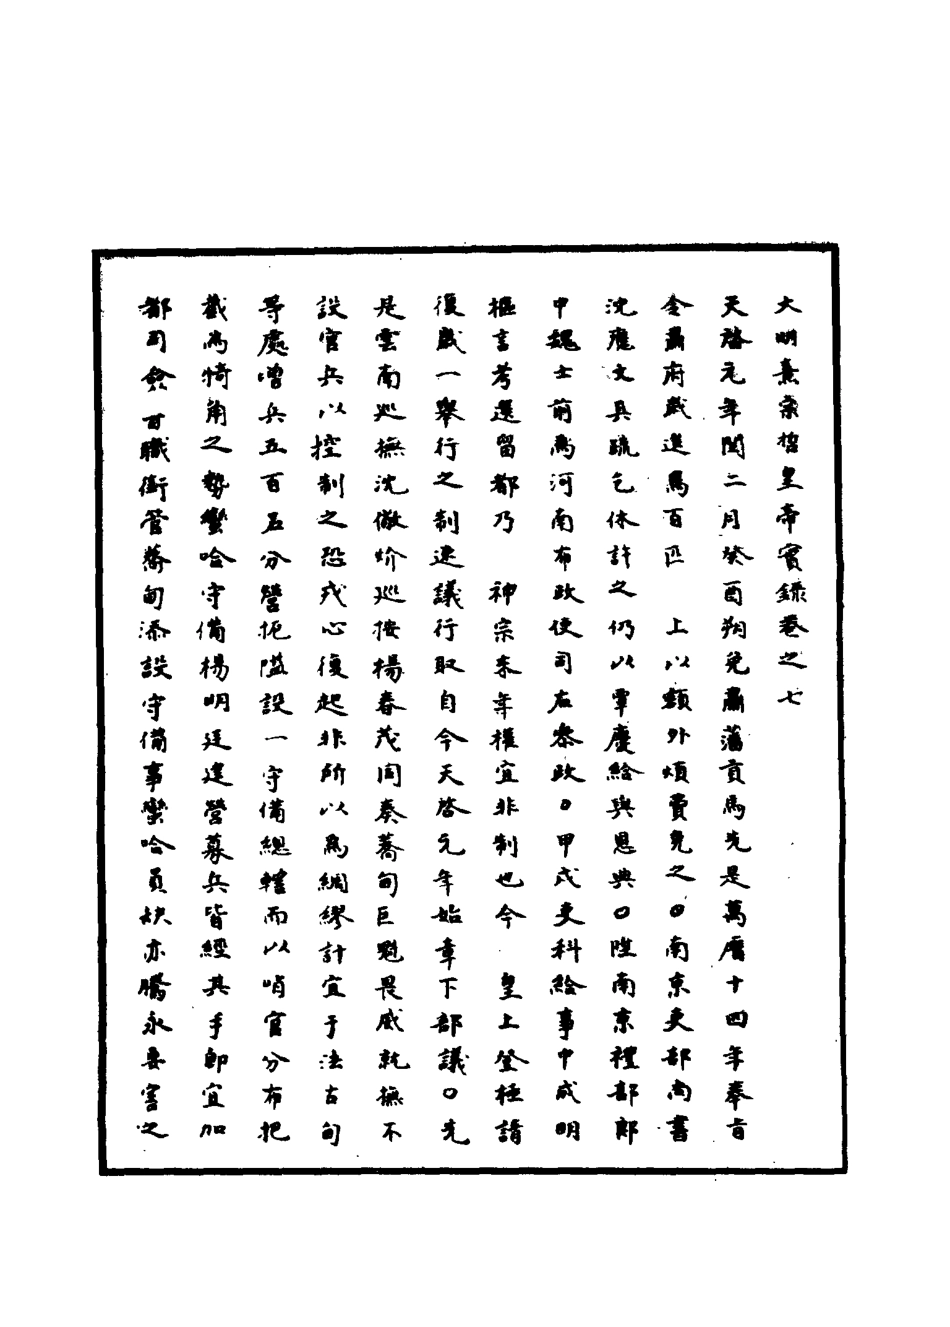 大明熹宗悊皇帝實錄卷之七
天啓元年閏二月癸酉朔免肅藩貢馬先是萬曆十四年奉旨
令肅府歲進馬百匹　上以額外煩費免之○南京吏部尚書
沈應文具疏乞休許之仍以覃慶給與恩典○陞南京禮部郎
中魏士前爲河南布政使司右叅政○甲戌吏科給事中成明
樞言考選留都乃　神宗末年權宜非制也今　皇上登極請
復歲一舉行之制速議行取自今天啓元年始章下部議○先
是雲南巡撫沈儆炌巡按楊春茂同奏蕎甸巨魁畏威就撫不
設官兵以控制之恐戎心復起非所以爲綢繆計宜于法古甸
等處增兵五百名分營扼隘設一守備總轄而以哨官分布把
截爲犄角之勢蠻哈守備楊明廷建營募兵皆經其手即宜加
都司僉書職銜管蕎甸添設守備事蠻哈員缺亦騰永要害之